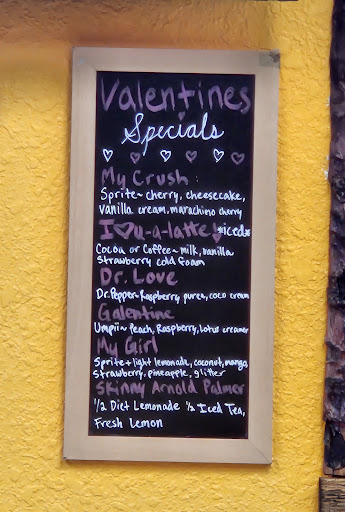 Valentines
Specials
My Crush :
Sprite~ cherry, cheesecake,
vanilla cream, marachino cherry
I ♡ u-a-latte! *iced*
Cocoa or Coffee~ milk, vanilla
Strawberry cold foam
Dr. Love
Dr. Pepper~ Raspberry, puree, coco cream
Galentine
Umpii~ Peach, Raspberry, Lotus creamer
My Girl
Sprite + light lemonade, coconut, mango
Strawberry, pineapple, glitter
Skinny Arnold Palmer
1/2 Diet Lemonade 1/2 Iced Tea,
Fresh Lemon